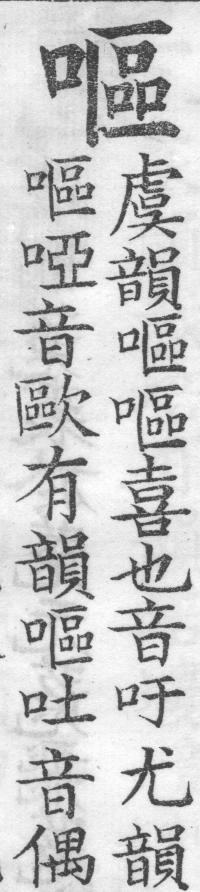 嘔
虞韻嘔嘔喜也音吁尤韻
嘔啞音歐有韻嘔吐音偶